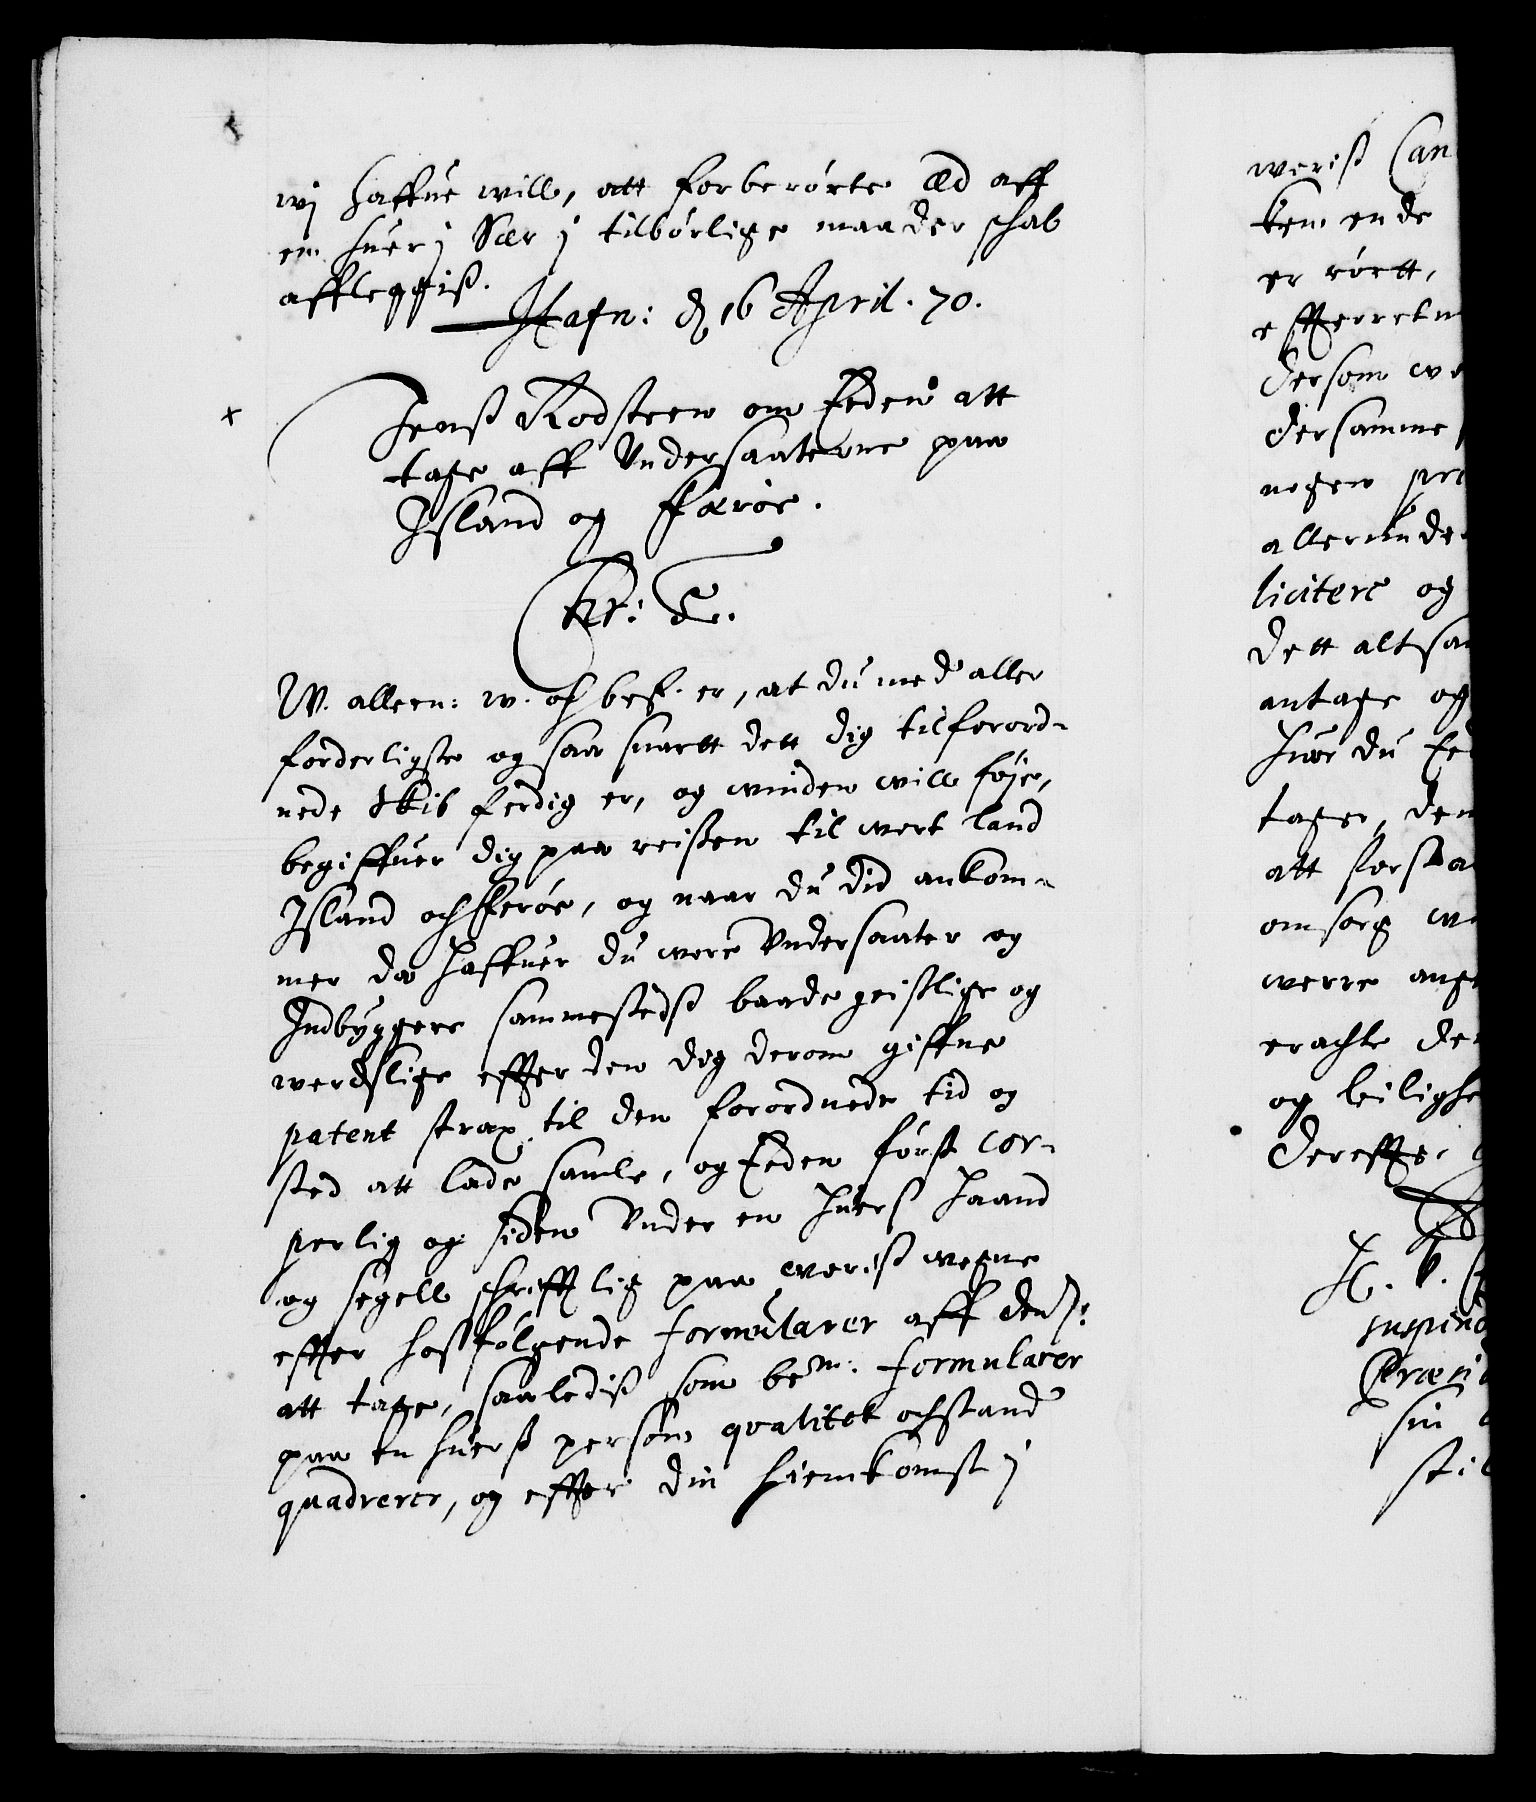 wj haffue will, att forberørte Æd aff
en huer j Sær j tilbørlige maader schal
afflegges.
Hafn: d. 16 April. 70.
Jenss Rodsteen om Eeden att
tage aff Undersaaterne paa
Island og Færøe.
W. alleern: w. oc bef. er, at du med aller
forderligste og saa snartt dett dig tilforord-
nede Skib ferdig er, og winden will føje,
begiffuer dig paa reissen til wort land
Island och Ferøe, og naar du did ankom-
mer da haffuer du wore Undersaater og
Indbyggere sammestedss baade geistlige og
werdslige effter den dig derom giffne
patent strax til den forordnede tid og
sted att lade samle, og Eeden først cor-
perlig og siden Under en huerss haand
og segell schrifftlig paa woriss wegne
effter hossfølgende formularer aff dem
att tage, saalediss som bem: formularer
paa en huerss person qvalitet och stand
quadrerer, og effter din hiemkomst j
woriss Can
kom ende
er rørtt,
effterretn
dersom
dersamme
nogen pre
allerunde
licitere og
dett altsa
antage og
huor du Ee
tager, dem
att forsta
omsorg
werre ange
erachte de
og leilighe
dereffter
H. B.
suspend
Præsi
sin
stil